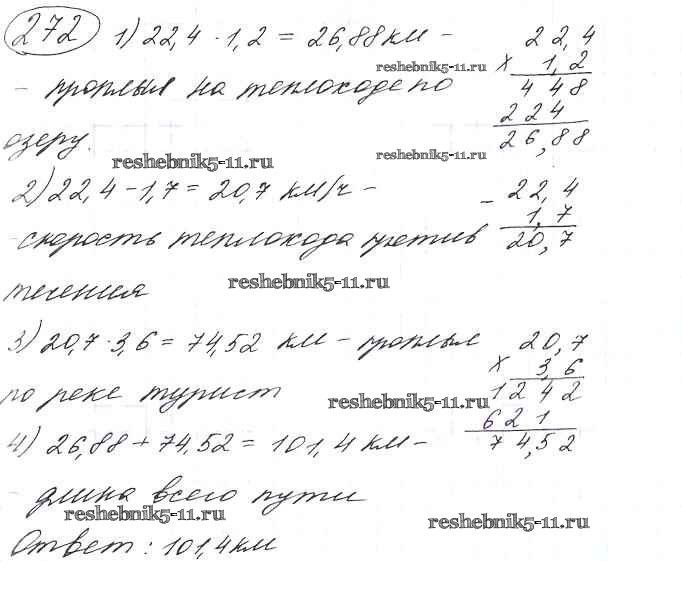 272 1) 22,4 · 1,2 = 26,88 км – 22,4
reshebnik5-11.ru × 1,2
– проплыл на теплоходе по 448
224
озеру. reshebnik5-11.ru 26,88
reshebnik5-11.ru
2) 22,4 – 1,7 = 20,7 км/ч – – 22,4
1,7
– скорость теплохода против 20,7
reshebnik5-11.ru
течения
3) 20,7 · 3,6 = 74,52 км – проплыл 20,7
× 3,6
по реке турист 1242
reshebnik5-11.ru
621
4) 26,88 + 74,52 = 101,4 км – 74,52
– длина всего пути
reshebnik5-11.ru reshebnik5-11.ru
Ответ: 101,4 км